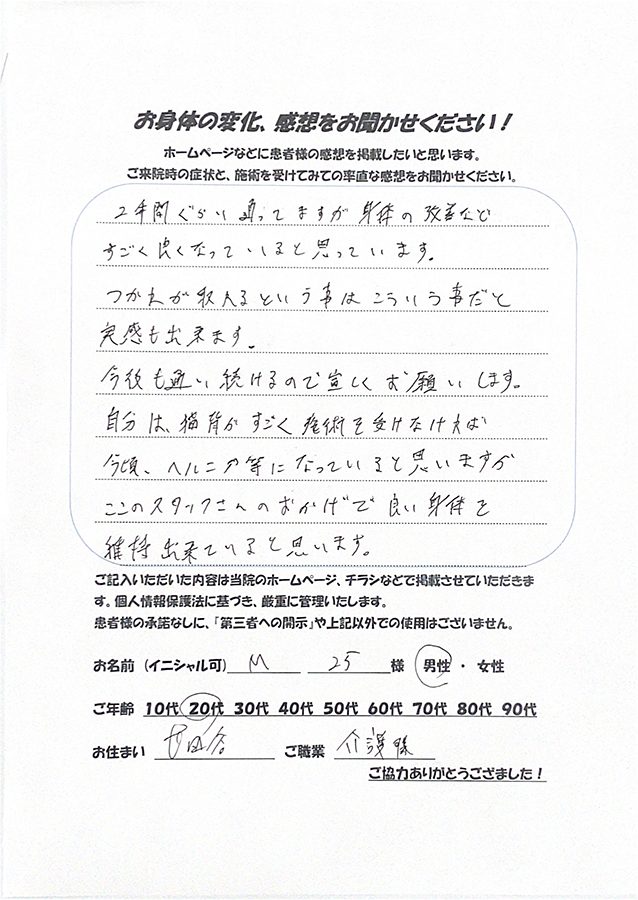 お身体の変化、感想をお聞かせください！
ホームページなどに患者様の感想を掲載したいと思います。
ご来院時の症状と、施術を受けてみての率直な感想をお聞かせください。
2年間ぐらい通ってますが身体の改善など
すごく良くなっていると思っています。
つかれが取れるという事はこういう事だと
実感も出来ます。
今後も通い続けるので宜しくお願いします。
自分は、猫背がすごく施術を受けなければ
今頃、ヘルニア等になっていると思いますが
ここのスタッフさんのおかげで良い身体を
維持出来ていると思います。
ご記入いただいた内容は当院のホームページ、チラシなどで掲載させていただきま
す。個人情報保護法に基づき、厳重に管理いたします。
患者様の承諾なしに、「第三者への開示」や上記以外での使用はございません。
お名前（イニシャル可） M 25 様 男性・女性
ご年齢 10代 20代 30代 40代 50代 60代 70代 80代 90代
お住まい ご職業 介護職
ご協力ありがとうござました！